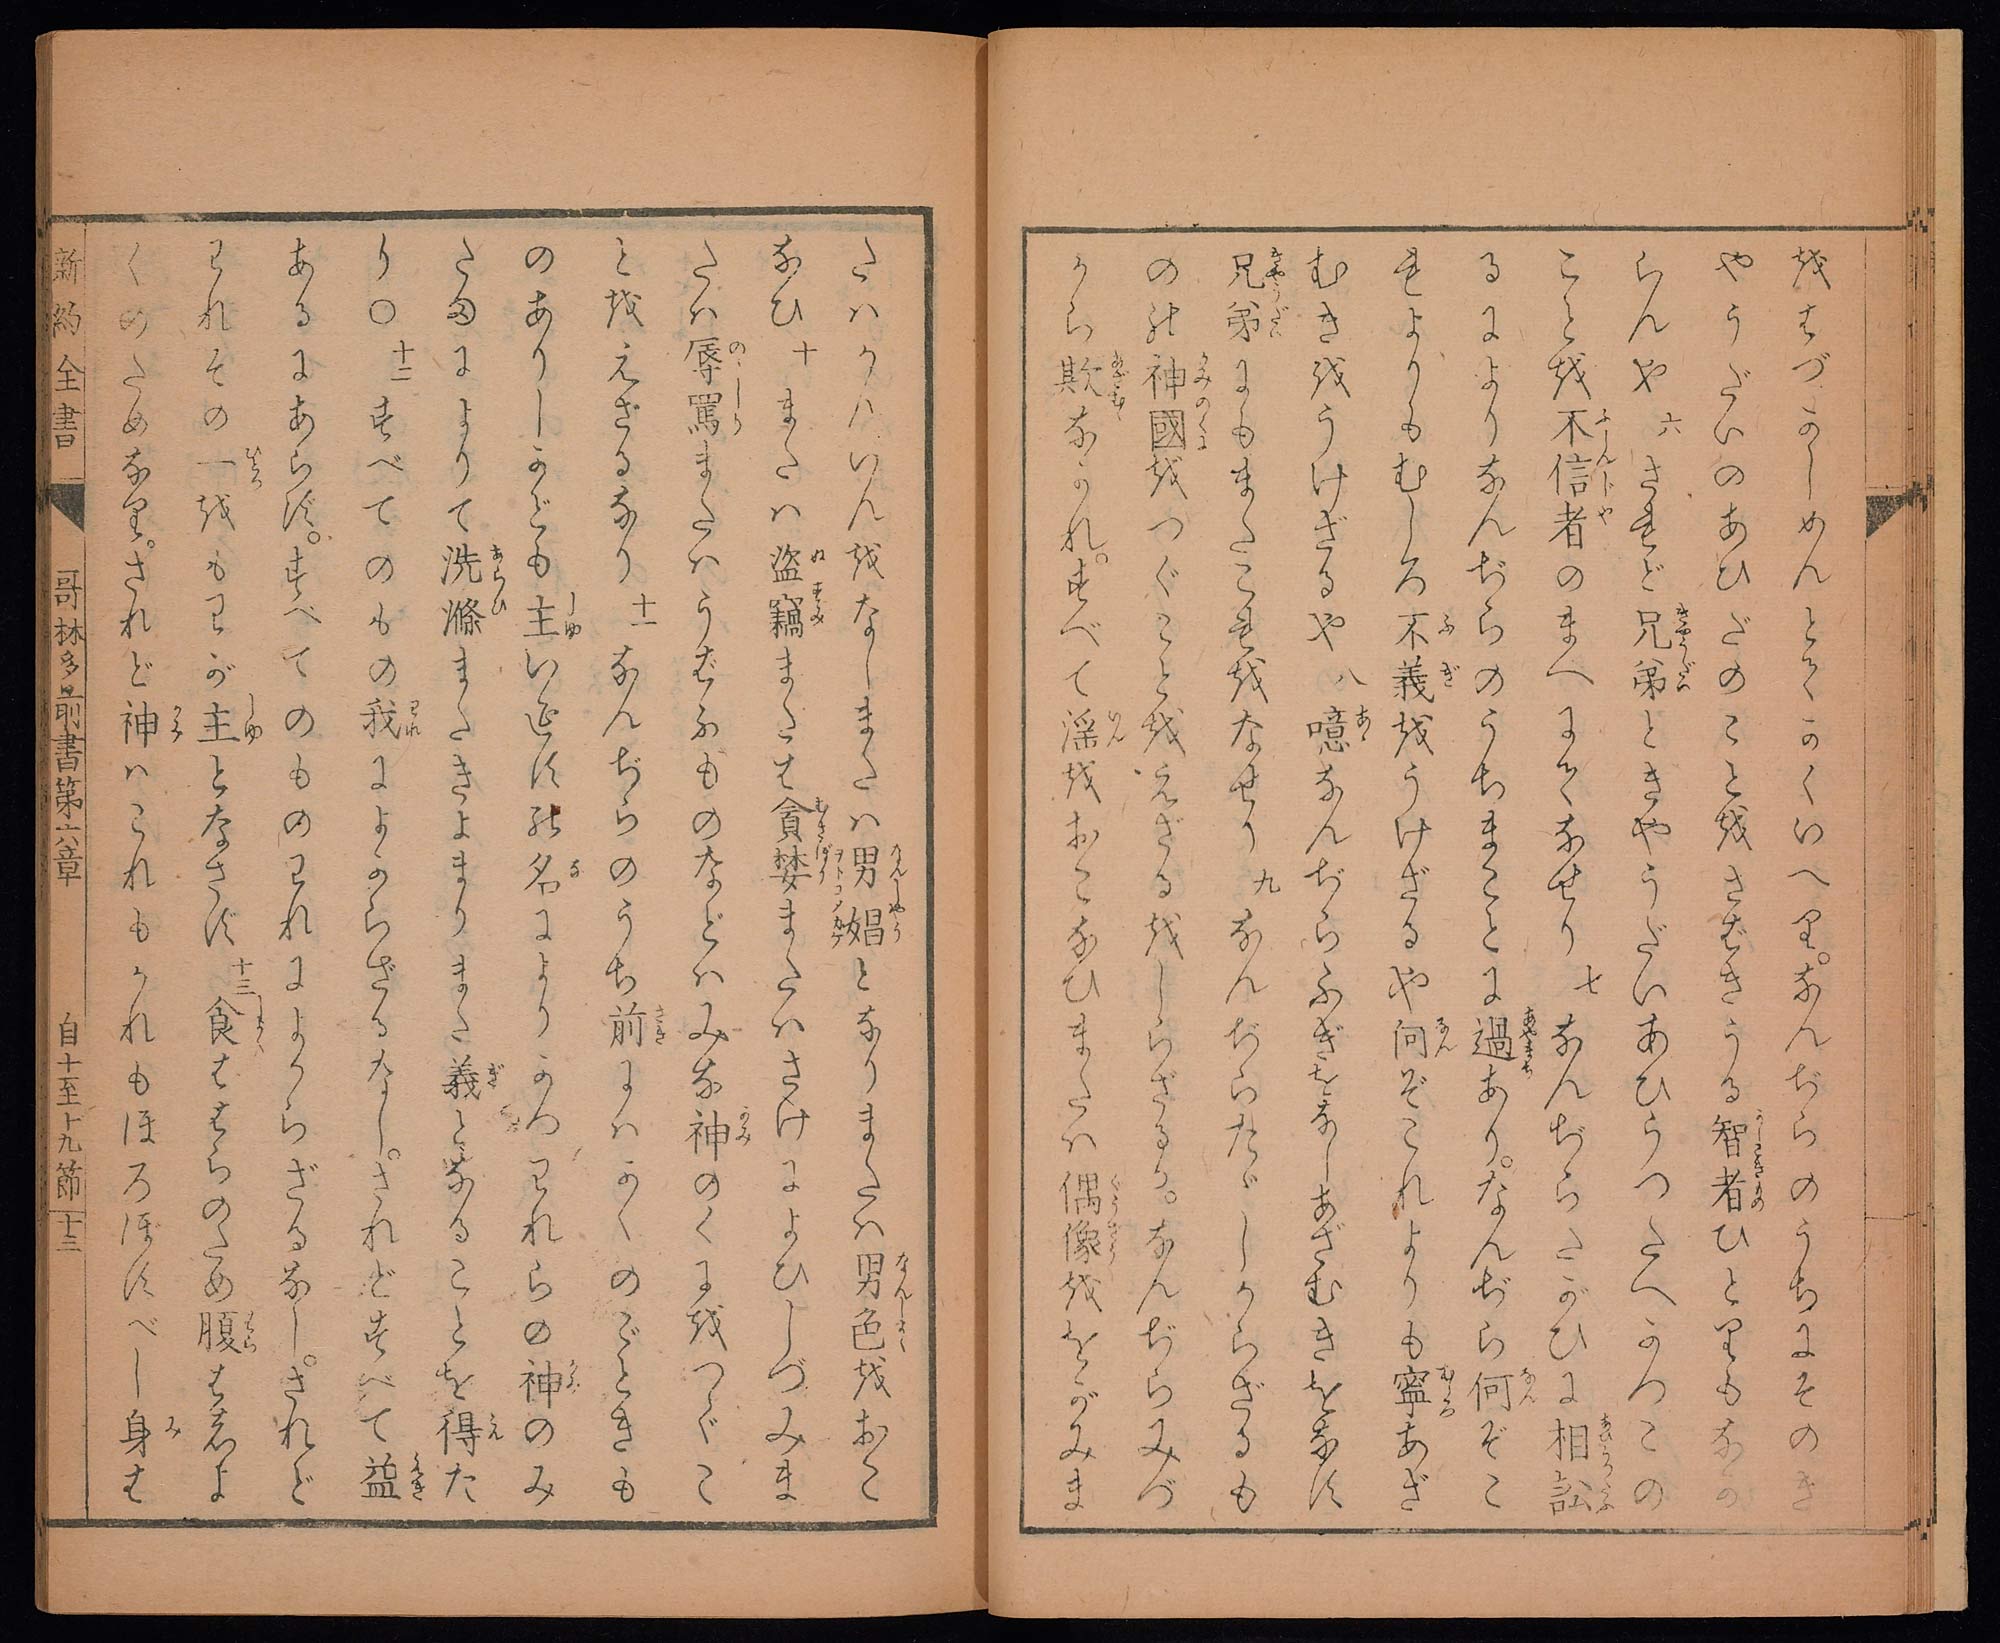 をはづかしめんとてかくいへり。なんぢらのうちにそのき
やうだいのあひだのことをさばきうる智者ひとりもなか
らんや 六 されど兄弟ときやうだいあひうつたへかつこの
ことを不信者のまへにてなせり 七 なんぢらたがひに相訟
るによりなんぢらのうちまことに過あり。なんぢら何ぞこ
れよりもむしろ不義をうけざるや何ぞこれよりも寧あざ
むきをうけざるや 八 噫なんぢらふぎをなしあざむきをなす
兄弟にもまたこれをなせり 九 なんぢらただしからざるも
のの神國をつぐことをえざるをしらざるか。なんぢらみづ
から欺なかれ。すべて淫をおこなひまたは偶像ををがみま
たはかんいんをなしまたは男娼となりまたは男色をおこ
なひ 十 または盗竊または貪婪またはさけによひしづみま
たは辱罵またはうばふものなどはみな神のくにをつぐこ
とをえざるなり 十一 なんぢらのうち前にはかくのごときも
のありしかども主いえすの名によりかつわれらの神のみ
たまによりて洗滌またきよまりまた義となることを得た
り〇 十二 すべてのもの我によからざるなし。されどすべて益
あるにあらず。すべてのものわれによからざるなし。されど
われその一をもわが主となさず 十三 食ははらのため腹はしよ
くのためなり。されど神はこれもかれもほろぼすべし身は
新約全書 哥林多前書第六章 自十至十九節 十三